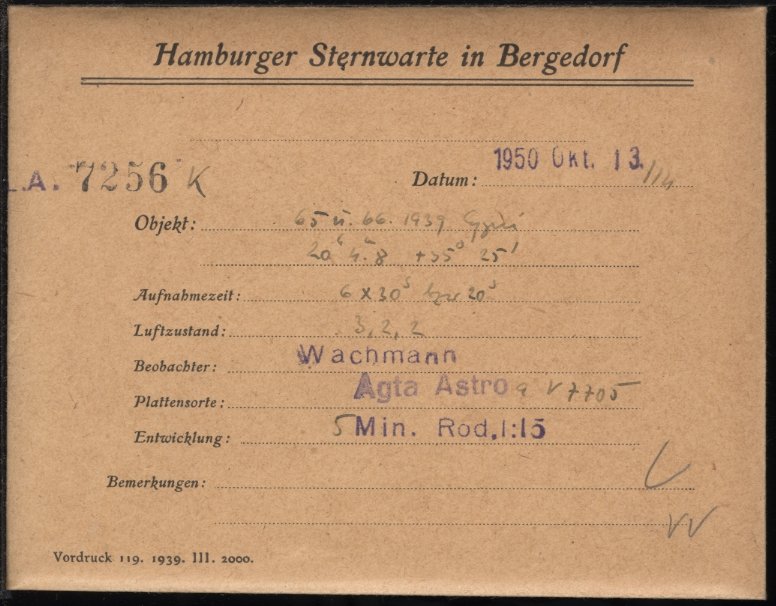 Hamburger Sternwarte in Bergedorf
L.A. 7256 K
Datum: 1950 Okt. 13./14
Objekt: 65 u. 66. 1939 Cygni
20ʰ 4ᵐ.8 +35° 25'
Aufnahmezeit: 6 x 30ˢ 20ˢ
Luftzustand: 3, 2, 2
Beobachter: Wachmann
Plattensorte: Agfa Astro V 7705
Entwicklung: 5 Min. Rod. 1:15
Bemerkungen:
VV
Vordruck 119. 1939. III. 2000.